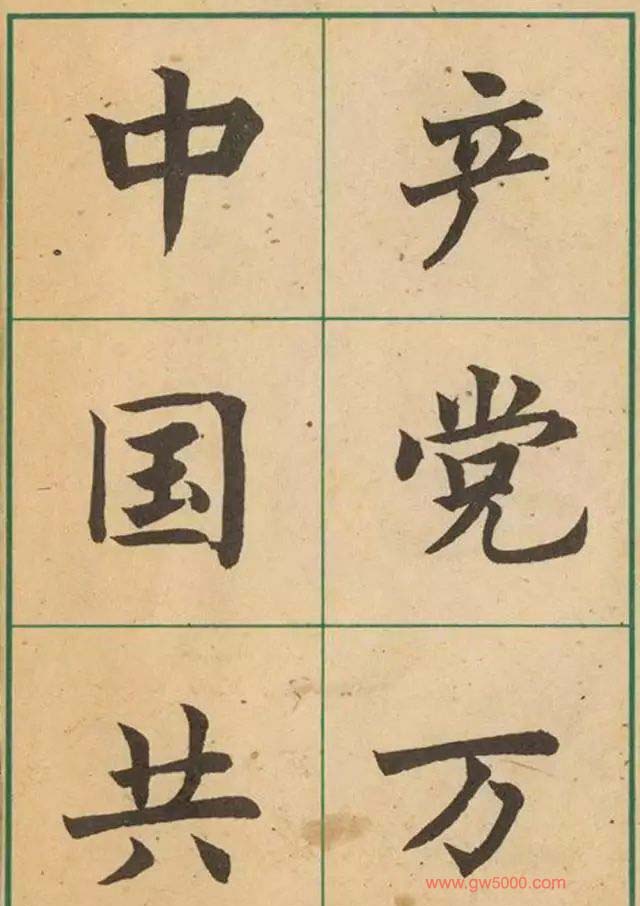 中
国
共
产
党
万
www.gw5000.com